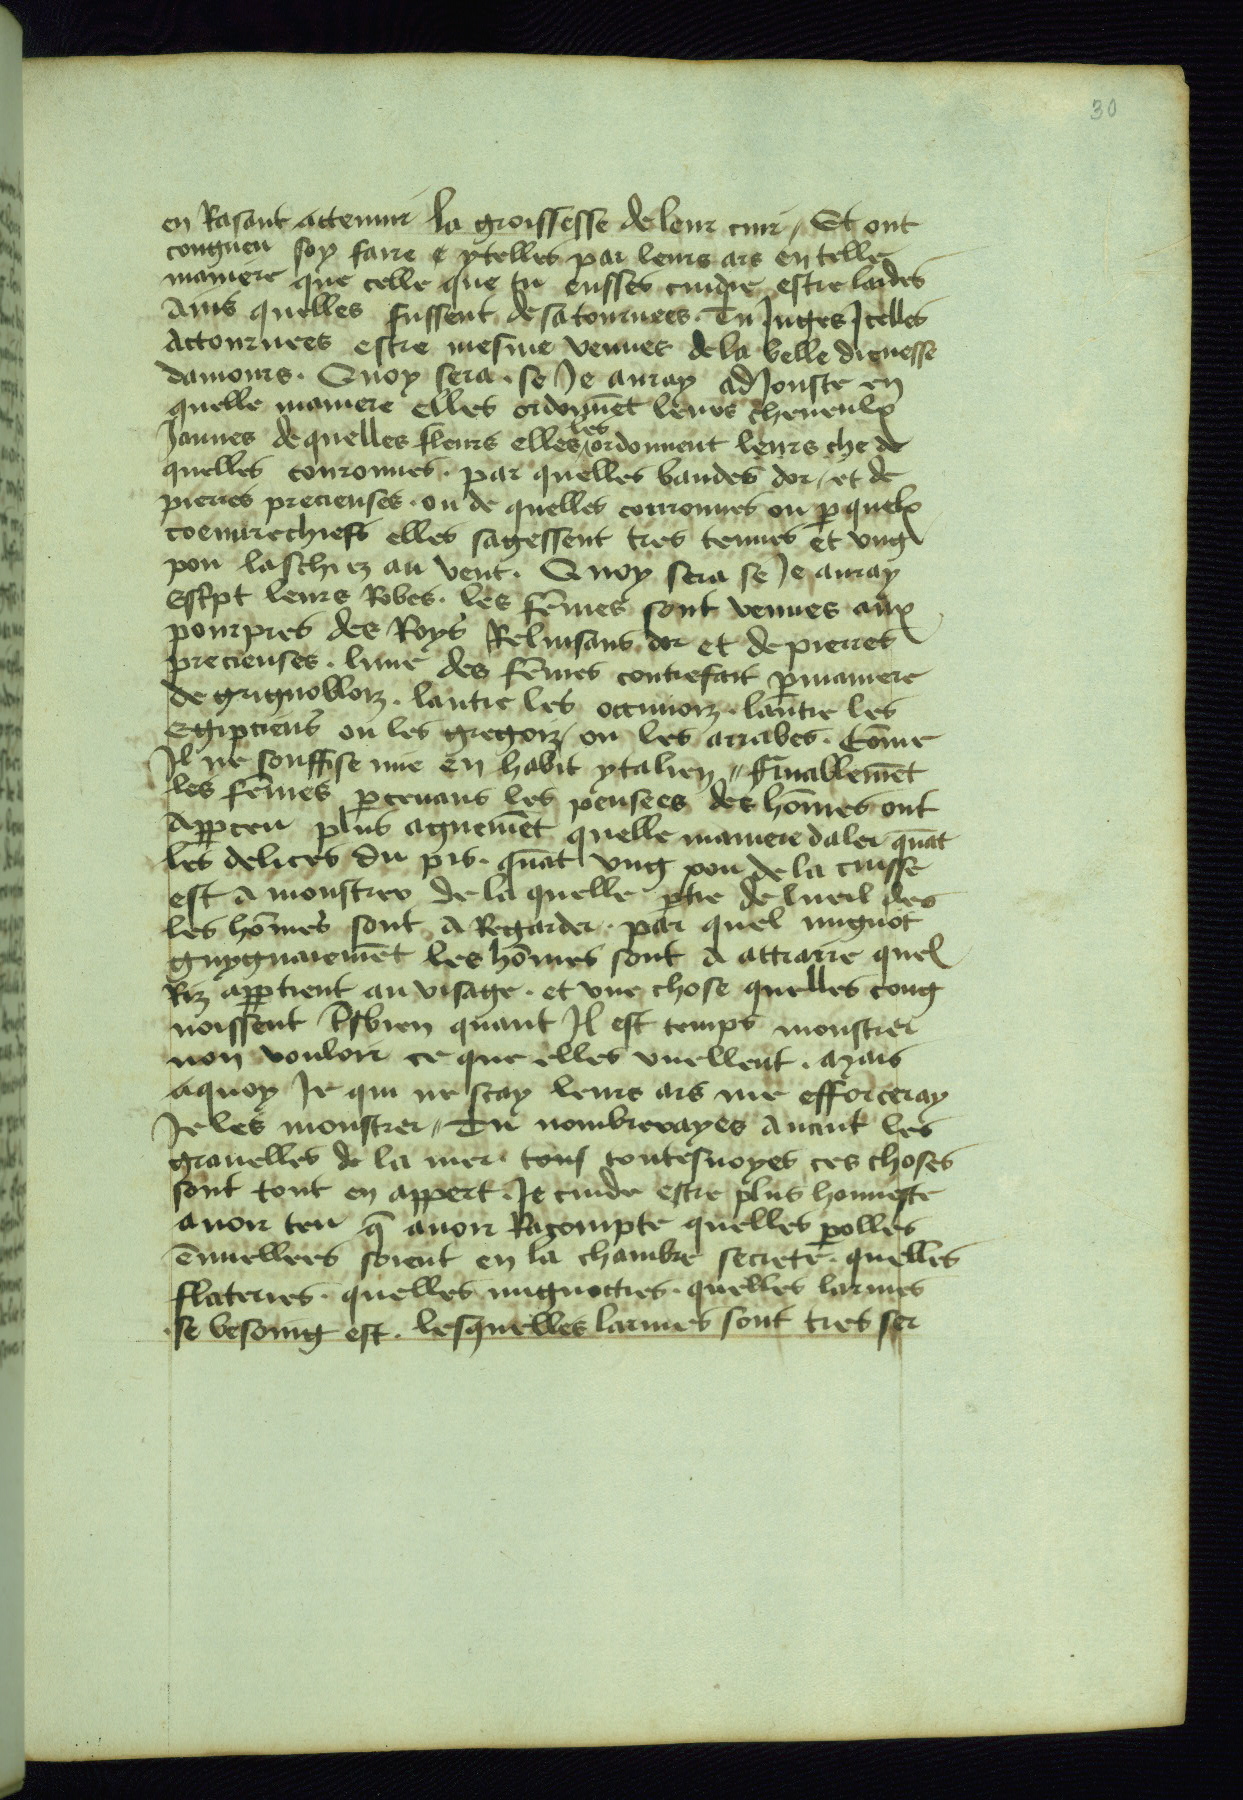 30
en Rasant attenuir la groissesse de leur cuir / Et ont
congneu soy faire & ytelles par leurs ars en telle
maniere que celle que tu eusses cuidie estre laides
Ains quelles fussent desatournees. Tu Juges Jcelles
Actournees estre mesme venues de la belle dieuesse
damours. Quoy sera. se Je auray adJouste en
quelle maniere elles ordonnēt leurs cheueulx
Jaunes de quelles fleurs elles les ordonnent leurs che de
quelles couronnes. par quelles bandes dor / et de
pierres precieuses. ou de quelles couronnes ou p quelx
coeuurechiefs elles sagessent tres tenues et ung
pou laschiez au vent. Quoy sera se Je auray
Escpt leurs Robes. les fēmes sont venues aux
pourpres des Roys Reluisans dor et de pierres
precieuses. lune des fēmes contrefait p maniere
de grignobloiz. lautre les occinoiz. lautre les
Egipciens ou les gregoiz / ou les arrabes. Cōme
Jl ne souffise mie en habit ytalien // Finablemēt
les fēmes pceuans les pensees des hōmes ont
Appceu plus aguemēt quelle maniere daler quāt
les delices du pis. quāt ung pou de la cuisse
est a monstrer de la quelle ptie de lueil des
les hōmes sont a Regarder. par quel mignot
guygnaiemēt les hōmes sont a attraire quel
Riz apptient au visage. et une chose quelles cong
noissent tsbien quant Jl est temps monstrer
non vouloir ce que elles vuellent. Mais
aquoy Je qui ne scay leurs ars me efforceray
Je les monstrer // Tu nombrerayes Auant les
grauelles de la mer. tous toutesuoyes ces choses
sont tout en appert. Je cuide estre plus honneste
auoir teu q̄ auoir Racompte quelles polles
ēmiellees soient en la chambre secrete. quelles
flateries. quelles mignocties. quelles larmes
se besoing est. lesquelles larmes sont tres ser